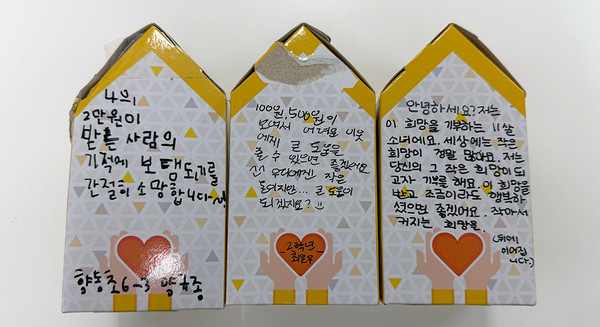 4의
2만원이
받는 사람의
기적에 보탬되기를
간절히 소망합니다-
향동초6-3
100원, 500원이
모여서 어려운 이웃
에게 큰 도움을
줄 수 있으면 좋겠어요
우리에겐 작은
돈이지만... 큰 도움이
되겠지요? :)
2학년
최윤우
안녕하세요? 저는
이 희망을 기부하는 11살
소녀에요. 세상에는 작은
희망이 정말 많아요. 저는
당신의 그 작은 희망이 되
고자 기부를 해요. 이 희망을
받고 조금이라도 행복하
셨으면 좋겠어요. 작아서
커지는 희망을.
(뒤에
이어집
니다.)